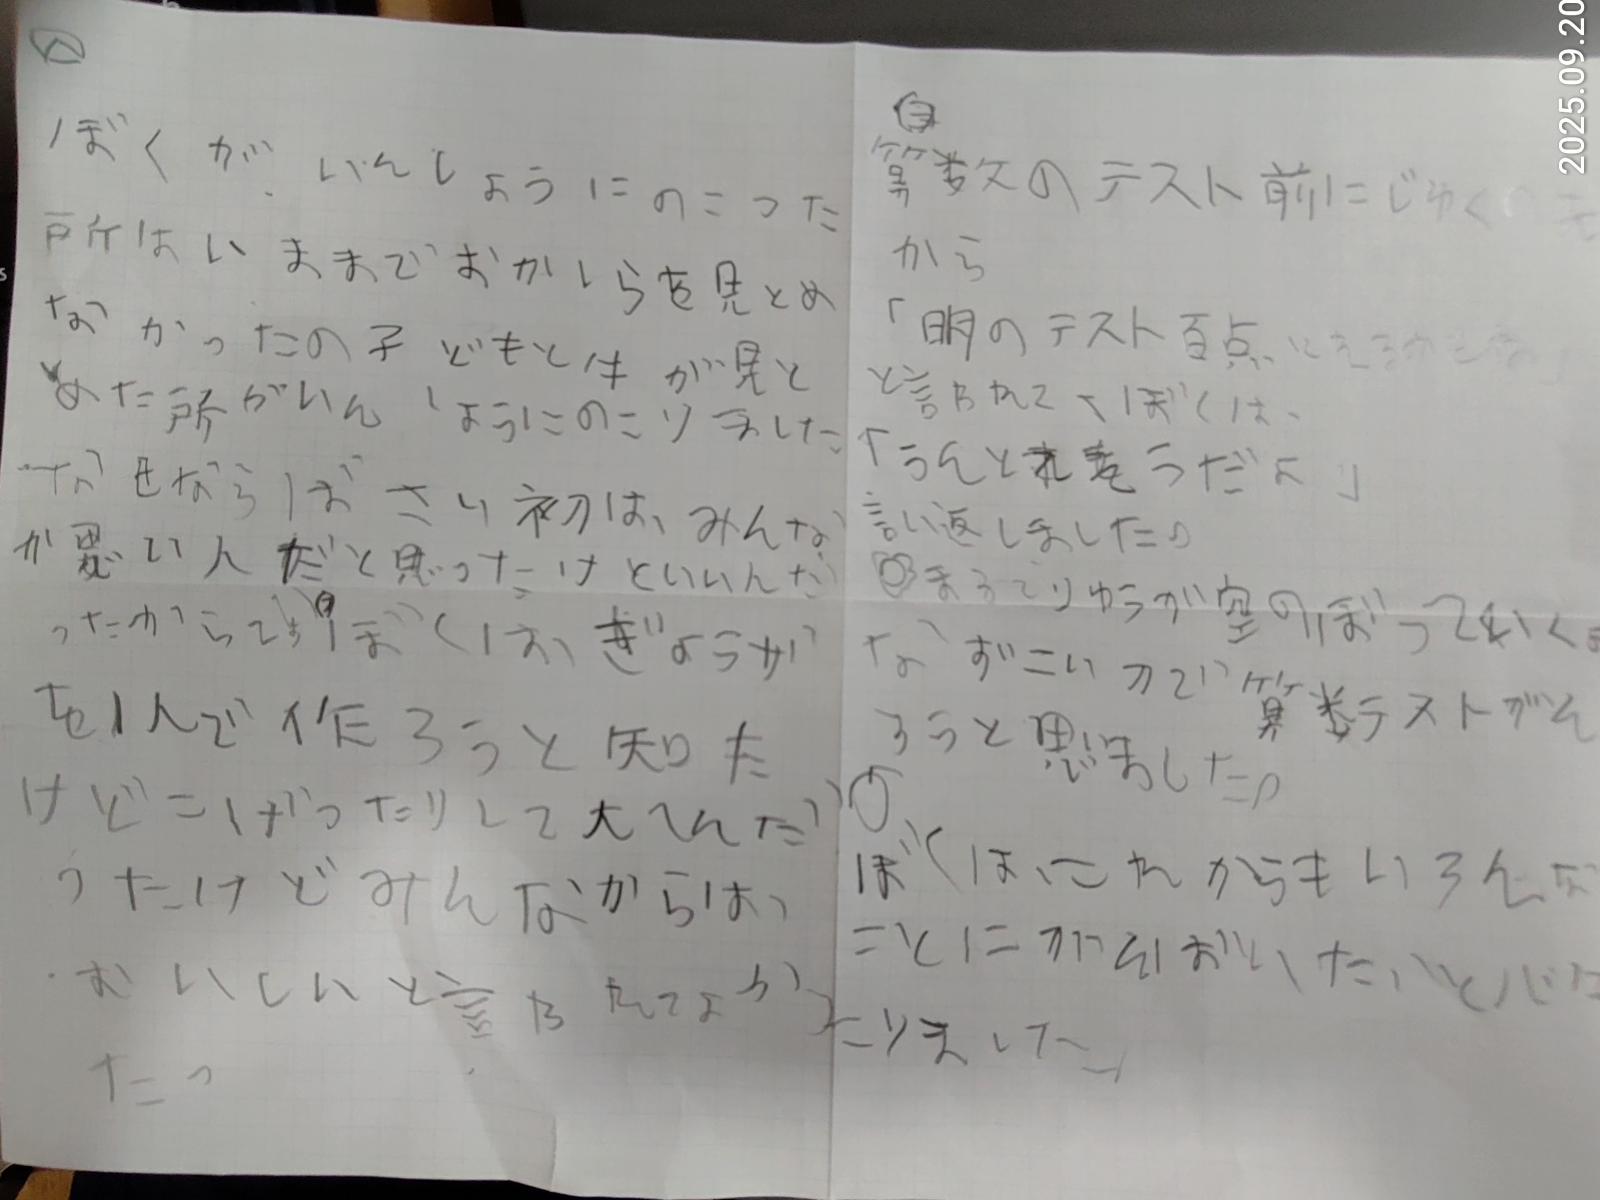 ぼくが、いんしょうにのこった
所はいままでおかしらを見とめ
なかったの子どもとはが見と
めた所がいんしょうにのこりました
なぜならばさい初は、みんな
が悪い人だと思ったけどいいんだ
ったからですぼくは、ぎょうが
を1人で作ろうと知た
けどこげったりして大へんだ
ったけどみんなからは、
おいしいと言われてよかっ
た。
算数のテスト前にじゅくの
から
「明のテスト百点
と言われて、ぼくは、
「うんとれそうだよ」
言い返しました。
まるでりゅうが空のぼっていくよ
なすごい力で算数テストがん
ろうと思いました。
ぼくは、これからもいろんな
ことにがんばりたいと心に
こりました。
2025.09.20